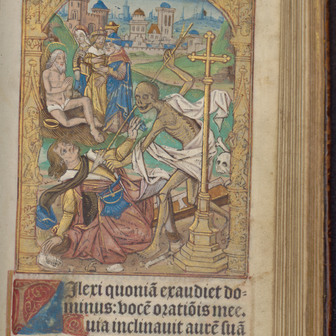 Dilexi quoniā exaudiet do-
minus: vocē oratiōis mee.
Quia inclinauit aurē suā